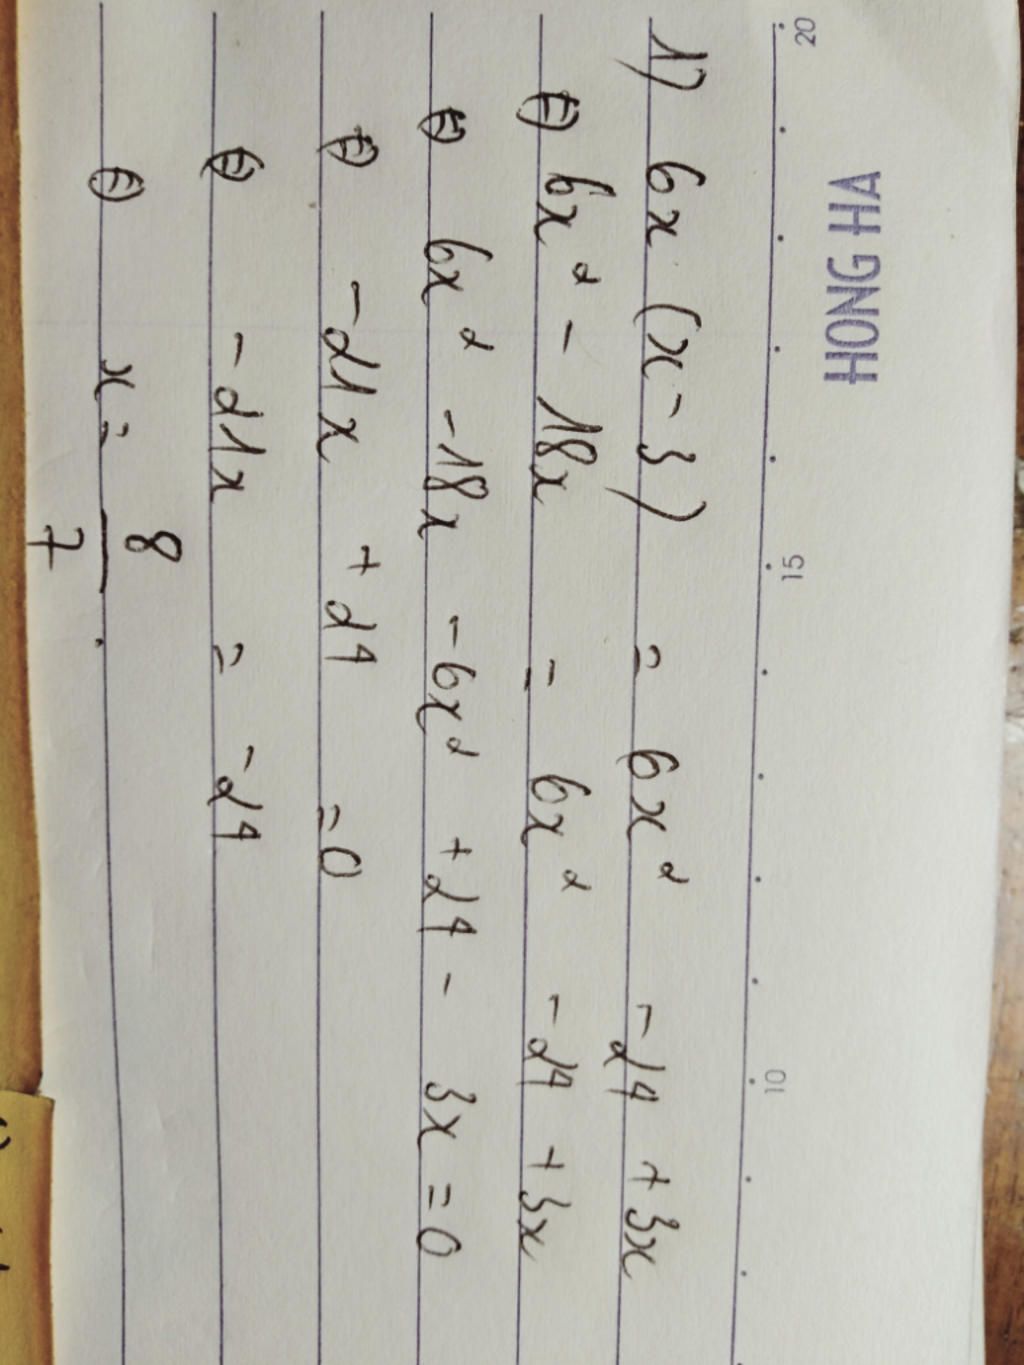 HONG HA
20 15 10
1) 6x (x - 3) = 6x² - 24 + 3x
⇔ 6x² - 18x = 6x² - 24 + 3x
⇔ 6x² - 18x - 6x² + 24 - 3x = 0
⇔ - 21x + 24 = 0
⇔ - 21x = -24
⇔ x = 8/7.